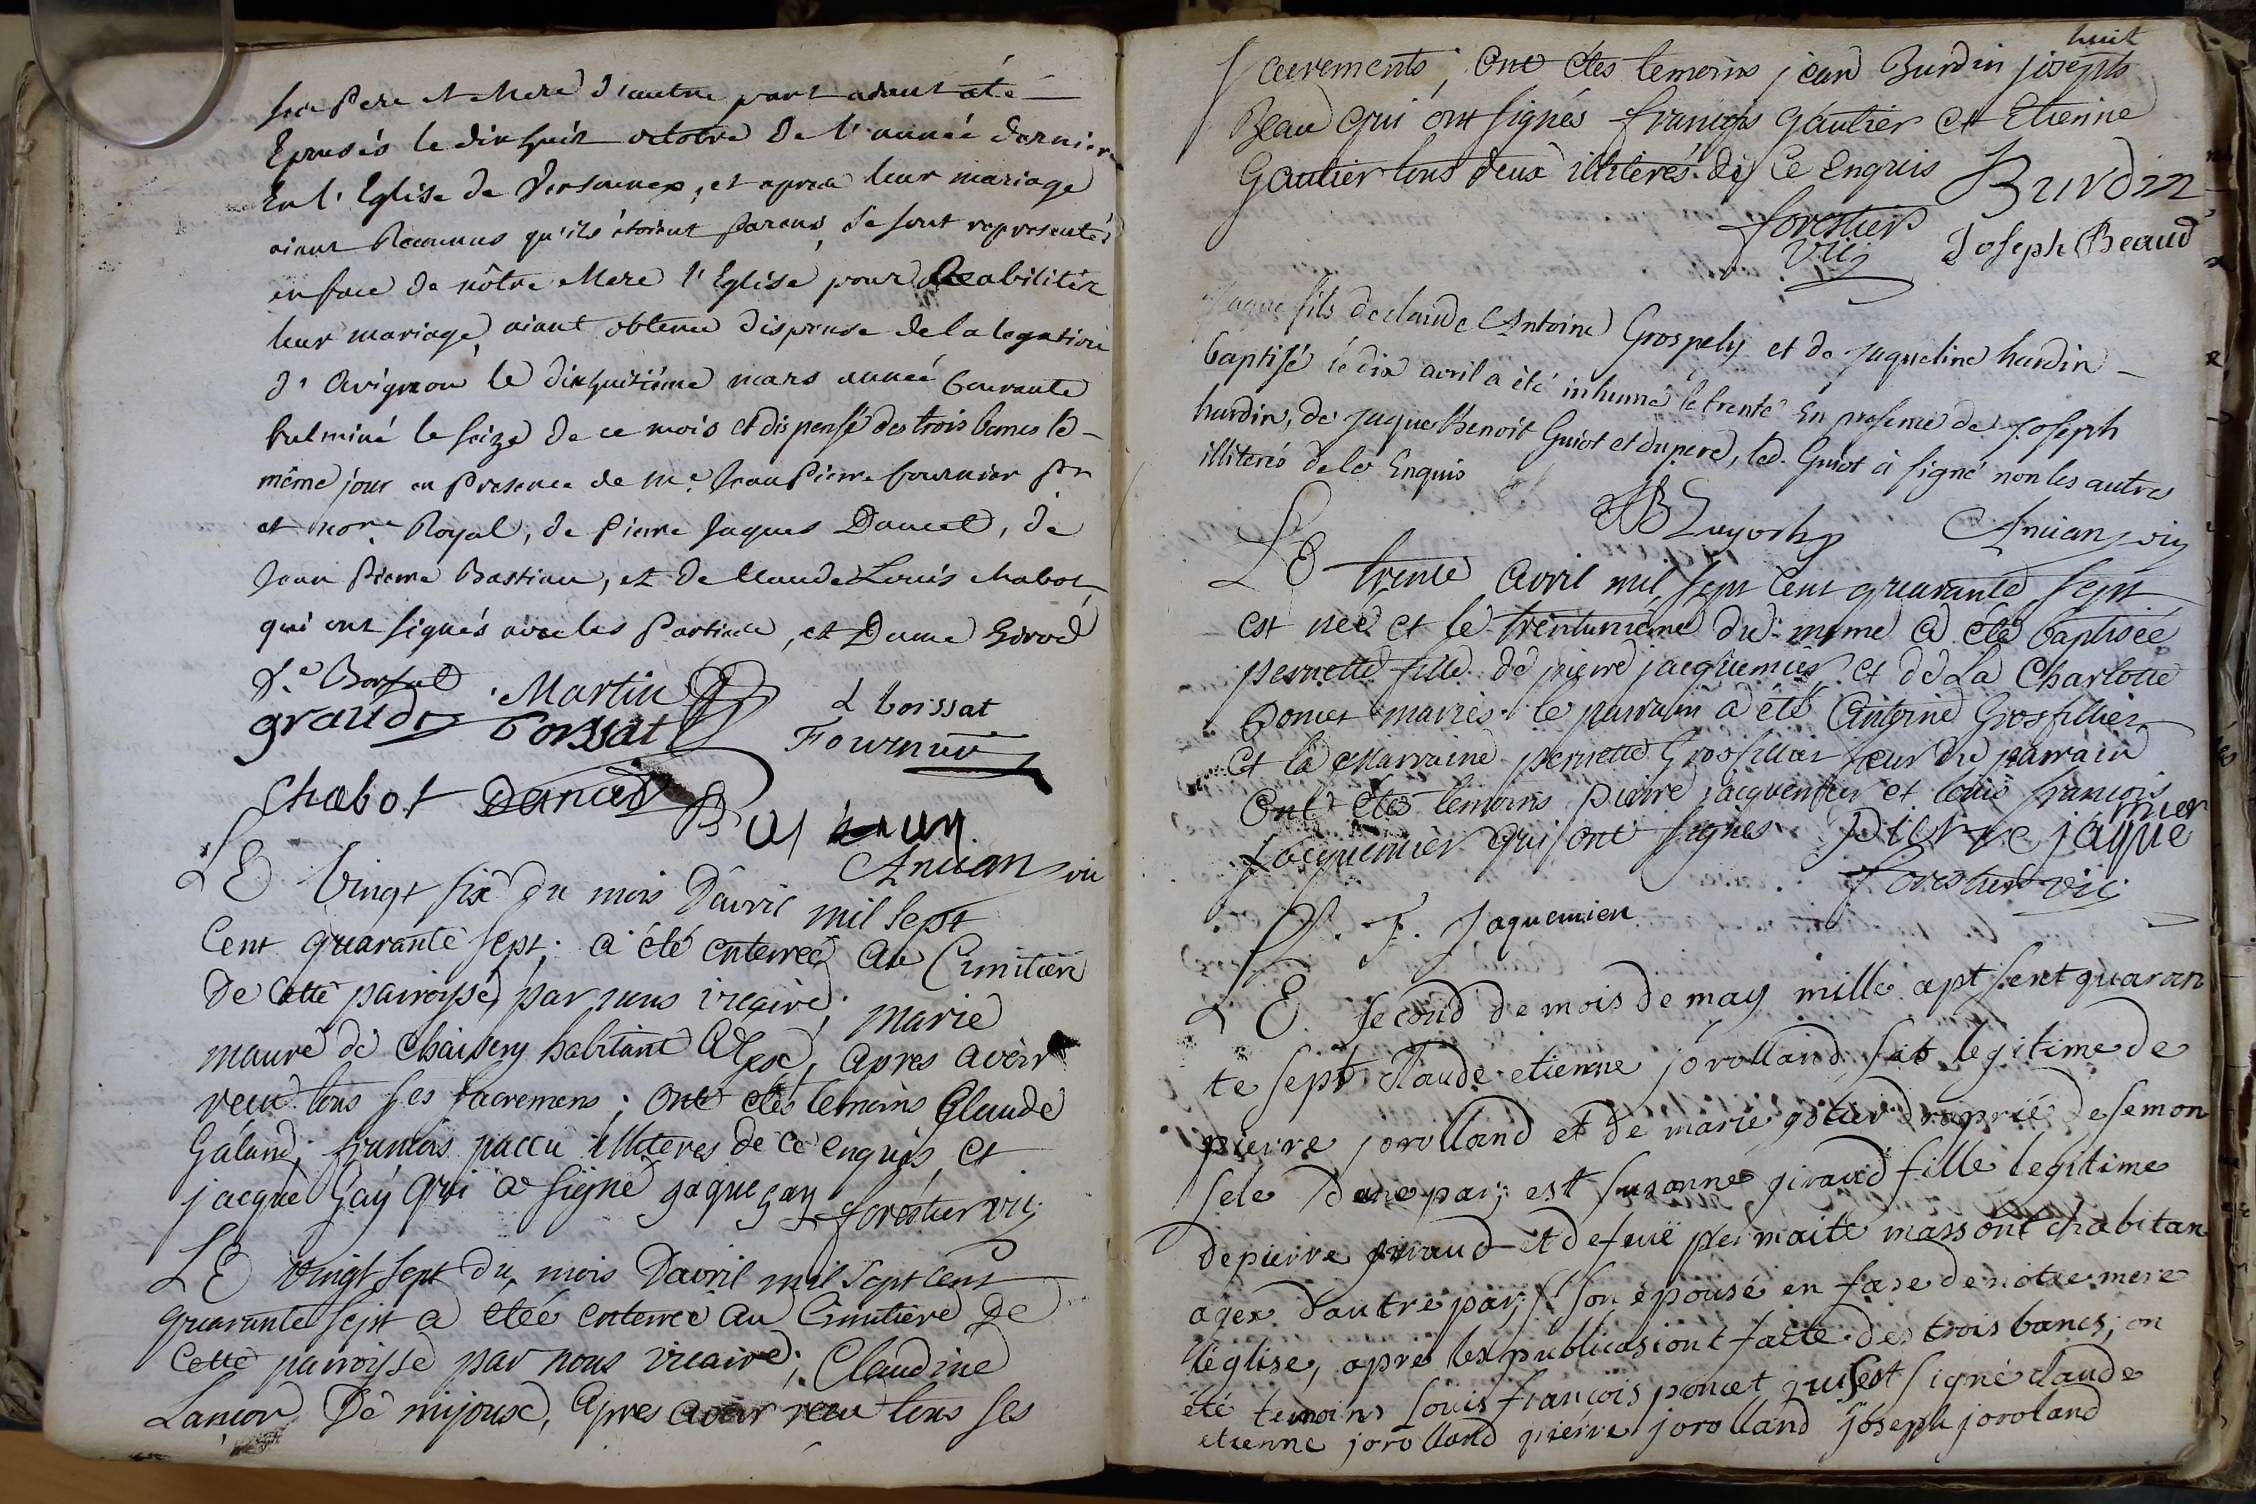 Pere et Mere d'autre part aiant été
Epousés le dixhuit octobre de l'année derniere
En l'Eglise de Versonnex, et après leur mariage
aiant Reconnus qu'ils étoient Parens, se sont representés
en face de nôtre Mere l'Eglise pour Reabiliter
leur mariage, aiant obtenu dispense de la legation
d'Avignon le dixhuitième mars année Courante
fulminé le seize de ce mois et dispensé des trois bancs le
même jour en Presence de Me. Jean Pierre fournier
et nore. Royal, de Pierre Jaques Dancet, de
Jean Pierre Bastian, et de Claude Louis chabot,
qui ont signés avec les Parties, et Dame Girod
Martin
L boissat
boissat
Fournier
Chabot Dancet
Anian vic
LE Vingt six du mois D'avril mil sept
Cent quarante sept. a été enterreé au Cimitière
De Cette parroysse, par nous vicaire; marie
maure de Chaisery habitante a Gex, apres avoir
recu tous ses sacremens; ont étés temoins Claude
Galand; francois paccu illiteres de ce enquis, et
jacque Gay qui a signé jaque gay forestier vic;
LE vingt sept du mois Davril mil sept cent
quarante sept a étéé enterreé au Cimitière De
Cette parroysse par nous vicaire; Claudine
Lançon De mijoux, apres avoir recu tous ses
huit
sacrements; ont étés temoins jean Burdin joseph
Beau qui ont signés françois Gautier et Etienne
Gautier tous deux illiterés. de ce Enquis Burdin
forestier
vic;
Joseph Beaud
Jaque fils de claude Antoine Grospely et de jaqueline hurdin
baptisé le dix avril a été inhumé le trente En presence de Joseph
hurdin, de jaque Benoit Guiot et du pere, led. Guiot à signé non les autres
illiterés de ce Enquis
Anian vic
LE trente avril mil sept cent quarante sept
est neé et le trentunieme du même a été baptisée
pernette fille de pierre jacquemier et de La Charlotte
Poncet mariés. le parrain a été Antoine Grosfillier
et la Marraine pernette Grosfillier sœur du parrain
ont étés temoins pierre jacquemier et louis françois
Jacquemier qui ont signés Pierre jaque
mier
forestier vic;
L. F. Jaquemier
LE second de mois de may mille sept sent quaran
te sept Claude etienne jorolland fis legitime de
pierre jorolland et de marie gotier droprié de semon
sele d'une par; est susanne giraud fille legitime
de pierre giraud et de fuë per maite massont chabitan
agex d'autre par; son épousé en fase de notre mere
l'église, apres lex publicasiont facte des trois bancs; on
été temoins Louis francois poncet qui sest signé claude
etienne jorolland pieire jorolland joseph joroland